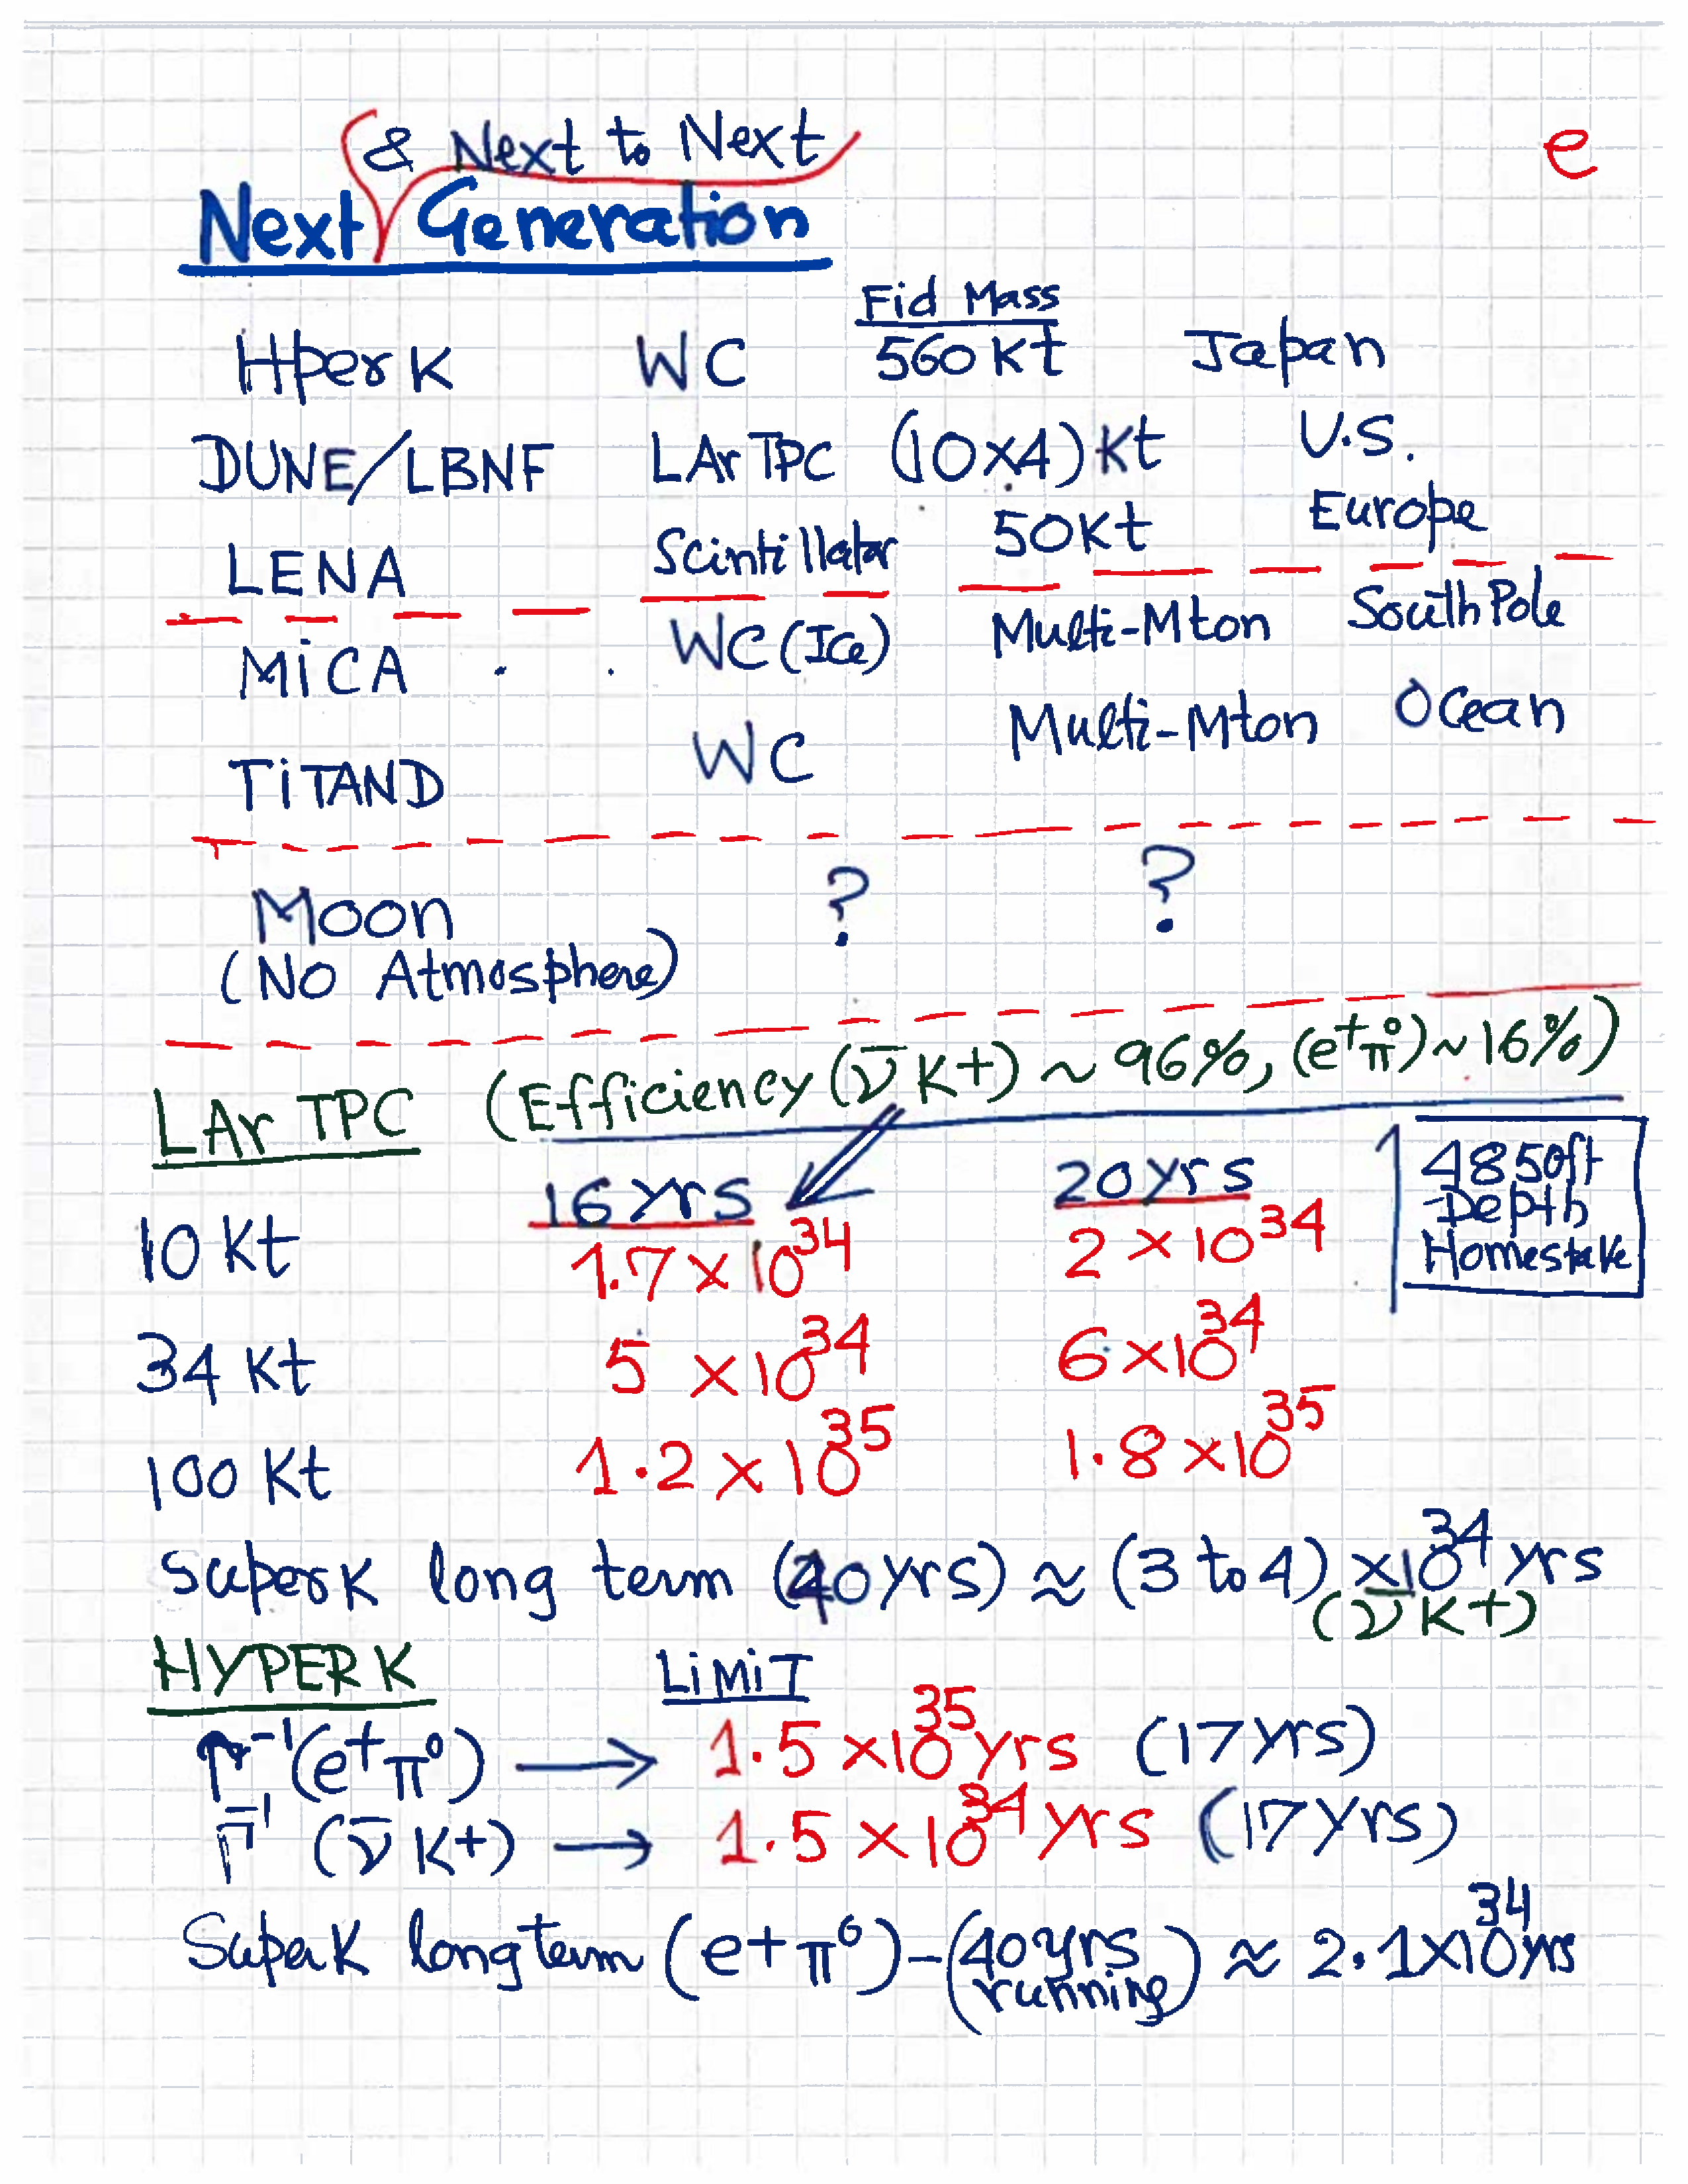 & Next to Next
e
Next Generation
Fid Mass
HperK WC 560 Kt Japan
DUNE/LBNF LArTPC (10x4) Kt U.S.
LENA Scintillator 50Kt Europe
MiCA WC (Ice) Multi-Mton South Pole
TiTAND WC Multi-Mton Ocean
Moon ? ?
(No Atmosphere)
LAr TPC (Efficiency (ν̄ K+) ~ 96%, (e⁺π⁰) ~ 16%)
16 yrs 20 yrs 4850ft
Depth
Homestake
10 Kt 1.7 × 10³⁴ 2 × 10³⁴
34 Kt 5 × 10³⁴ 6 × 10³⁴
100 Kt 1.2 × 10³⁵ 1.8 × 10³⁵
SuperK long term (40 yrs) ≈ (3 to 4) × 10³⁴ yrs
(ν̄ K+)
HYPER K LiMiT
Γ⁻¹(e⁺π⁰) → 1.5 × 10³⁵ yrs (17 yrs)
Γ⁻¹ (ν̄ K+) → 1.5 × 10³⁴ yrs (17 yrs)
SuperK long term (e+π⁰) – (40 yrs running) ≈ 2.1 × 10³⁴ yrs